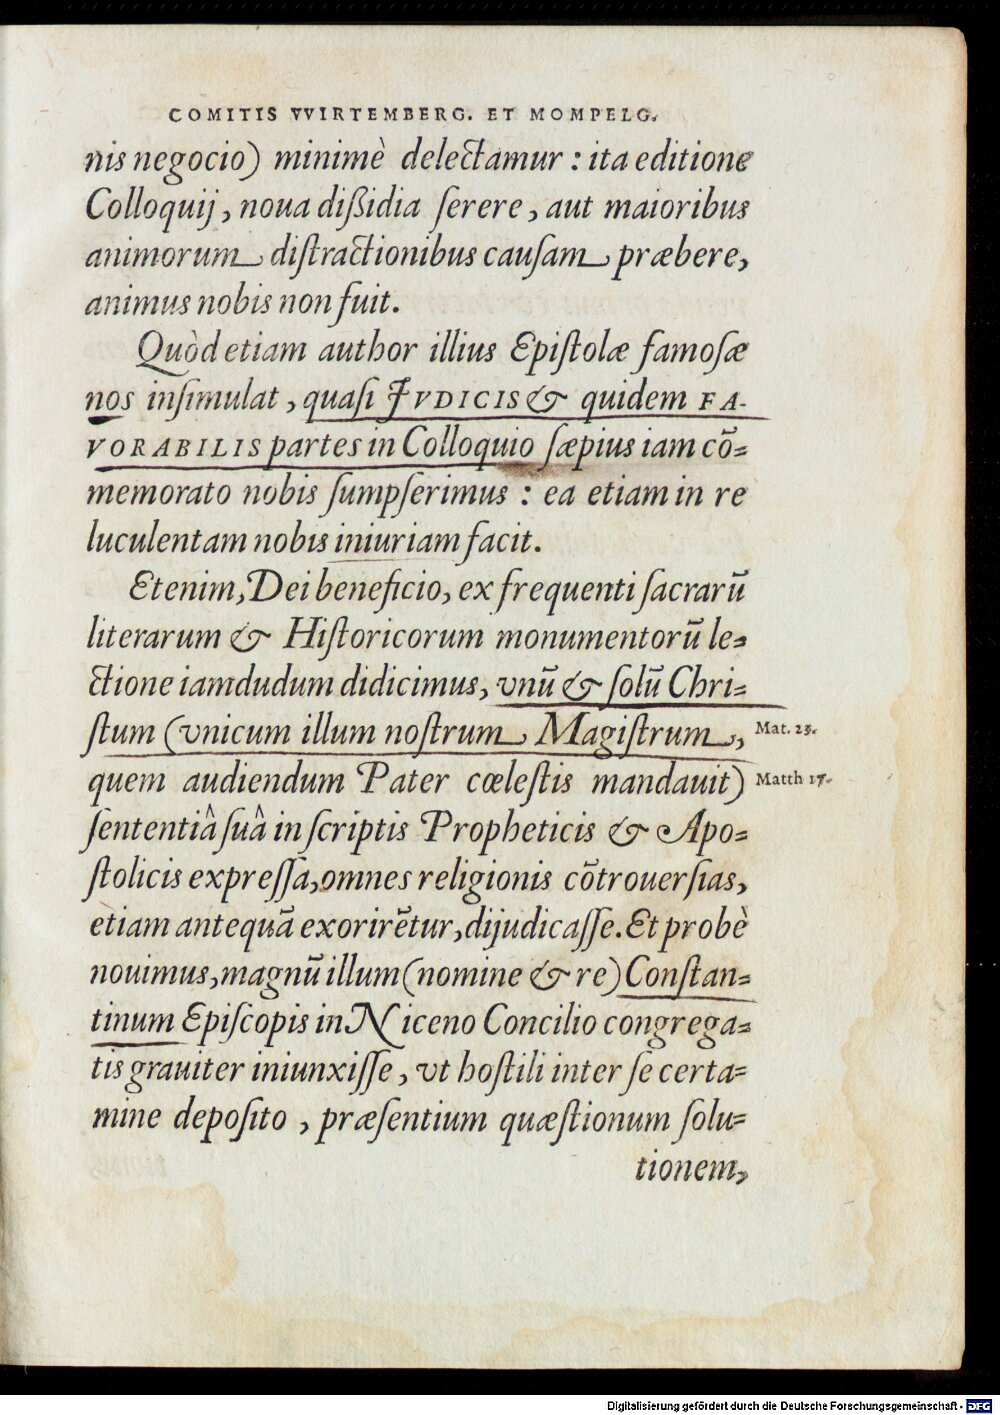 COMITIS VVIRTEMBERG. ET MOMPELG.
nis negocio) minimè delectamur : ita editione
Colloquij, noua dißidia ſerere, aut maioribus
animorum diſtractionibus cauſam præbere,
animus nobis non fuit.
Quòd etiam author illius Epiſtolæ famoſæ
nos inſimulat, quaſi JVDICIS & quidem FA-
VORABILIS partes in Colloquio ſæpius iam cõ=
memorato nobis ſumpſerimus : ea etiam in re
luculentam nobis iniuriam facit.
Etenim, Dei beneficio, ex frequenti ſacrarũ
literarum & Hiſtoricorum monumentorũ le=
ctione iamdudum didicimus, vnũ & ſolũ Chri=
ſtum (vnicum illum noſtrum Magiſtrum,
Mat. 23.
quem audiendum Pater cœleſtis mandauit)
Matth 17.
ſententiâ ſuâ in ſcriptis Propheticis & Apo=
ſtolicis expreſſa, omnes religionis cõtrouerſias,
etiam antequã exorirẽtur, dijudicaſſe. Et probè
nouimus, magnũ illum (nomine & re) Conſtan=
tinum Epiſcopis in Niceno Concilio congrega=
tis grauiter iniunxiſſe, vt hoſtili inter ſe certa=
mine depoſito, præſentium quæſtionum ſolu=
tionem,
Digitalisierung gefördert durch die Deutsche Forschungsgemeinschaft - DFG